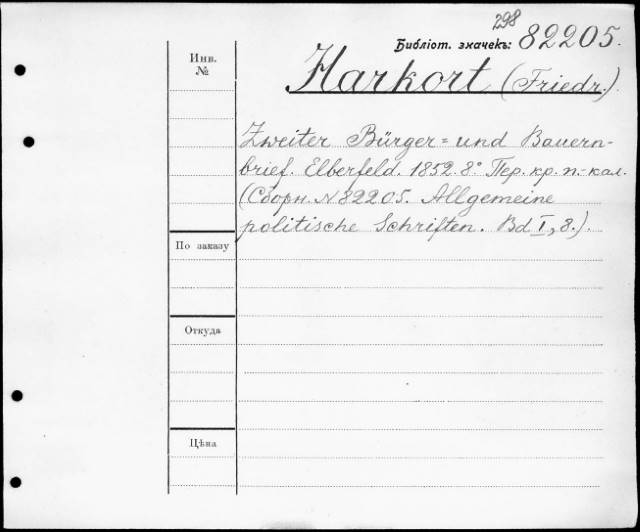 298
Библіот. значекъ: 82205.
Инв.
№
Harkort (Friedr.)
Zweiter Bürger= und Bauern-
brief. Elberfeld. 1852. 8° Пер. кр. п.-кал.
(Сборн. N 82205. Allgemeine
politische Schriften. Bd I, 8.).
По заказу
Откуда
Цѣна